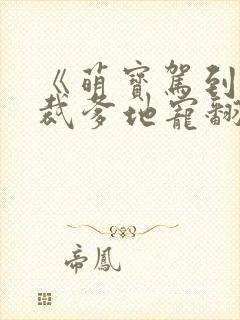 《萌寶駕到
裁爹地寵翻
帝鳳